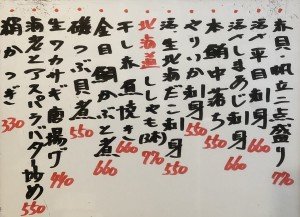 赤貝・帆立二点盛り 770
活〆平目刺身 660
活〆しまあじ刺身 660
本鮪中落ち 550
やりいか刺身 550
活・生北海だこ刺身 550
北海道ししゃも(3本) 770
干し赤魚焼き 660
金目鯛かぶと煮 660
磯つぶ貝煮 550
生ワカサギ唐揚げ 440
海老とアスパラバター炒め 550
鍋かつぎ 330